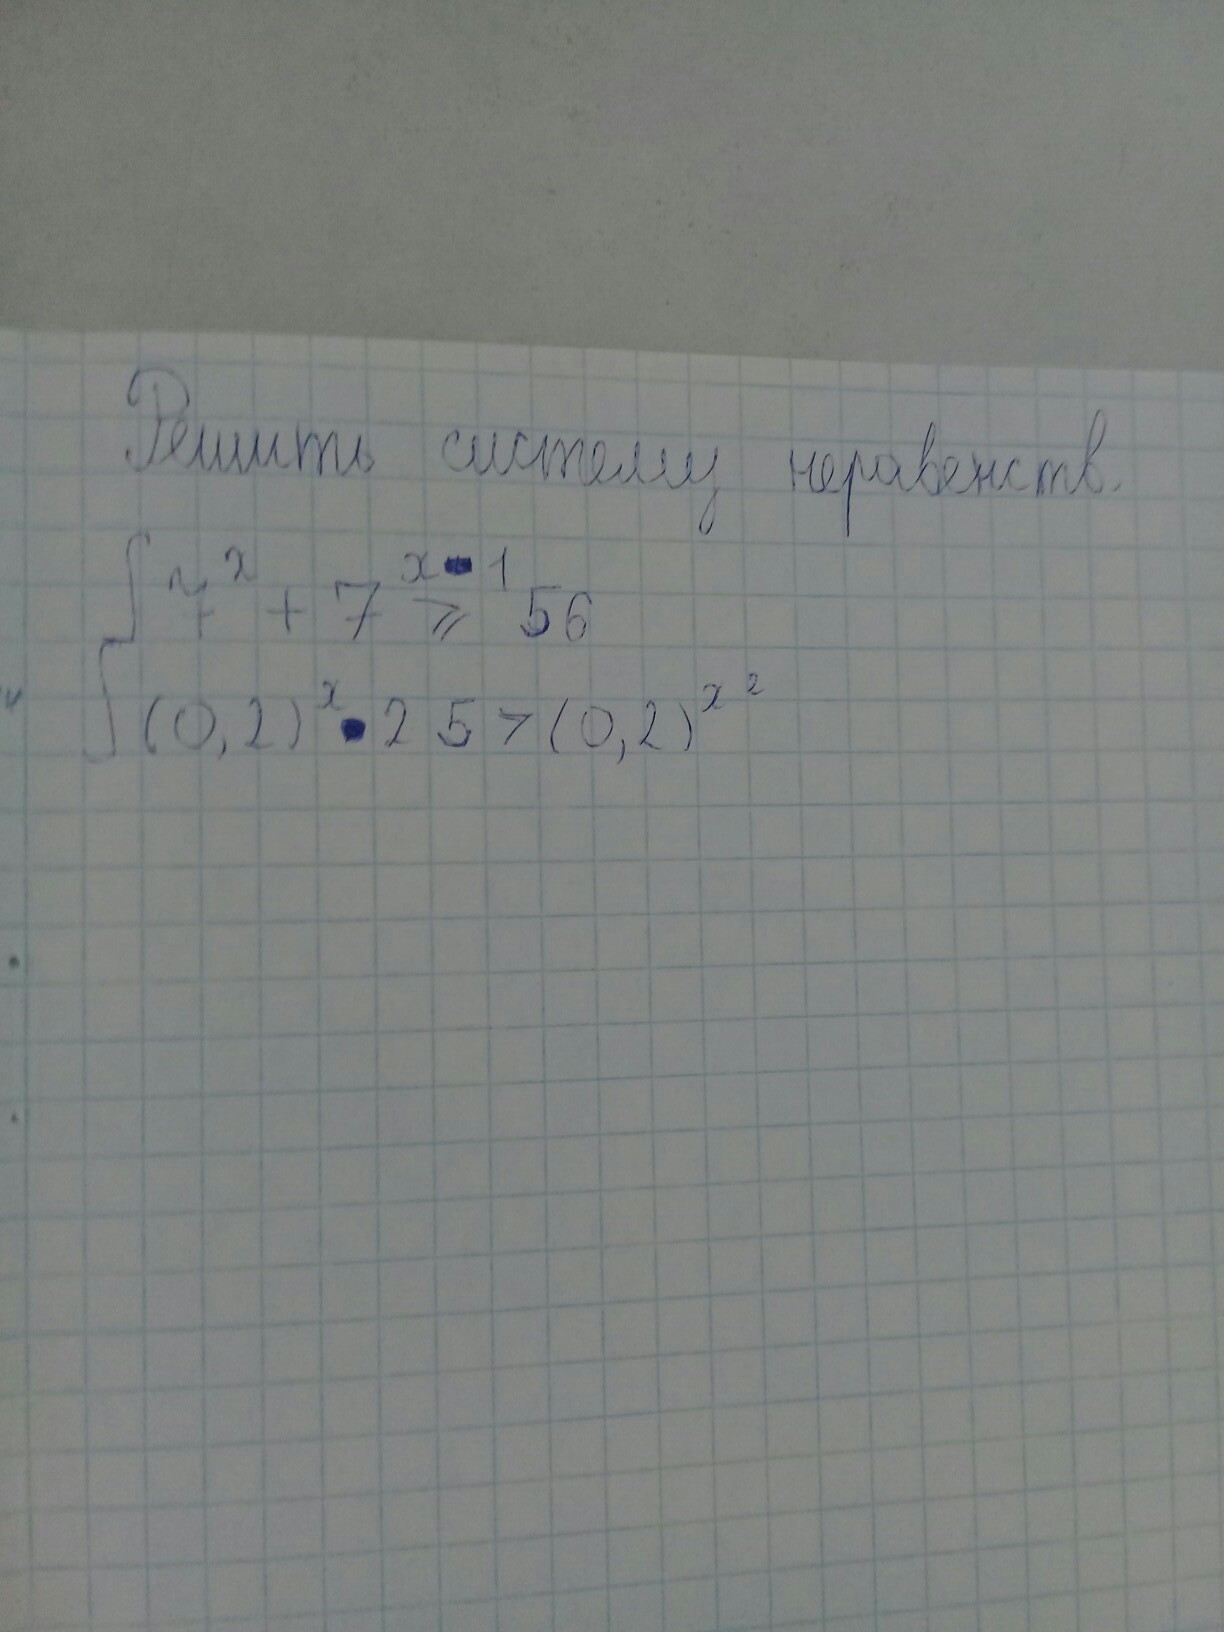 Решить систему неравенств.
7^x + 7^{x-1} ⩾ 56
(0,2)^x • 25 > (0,2)^{x^2}